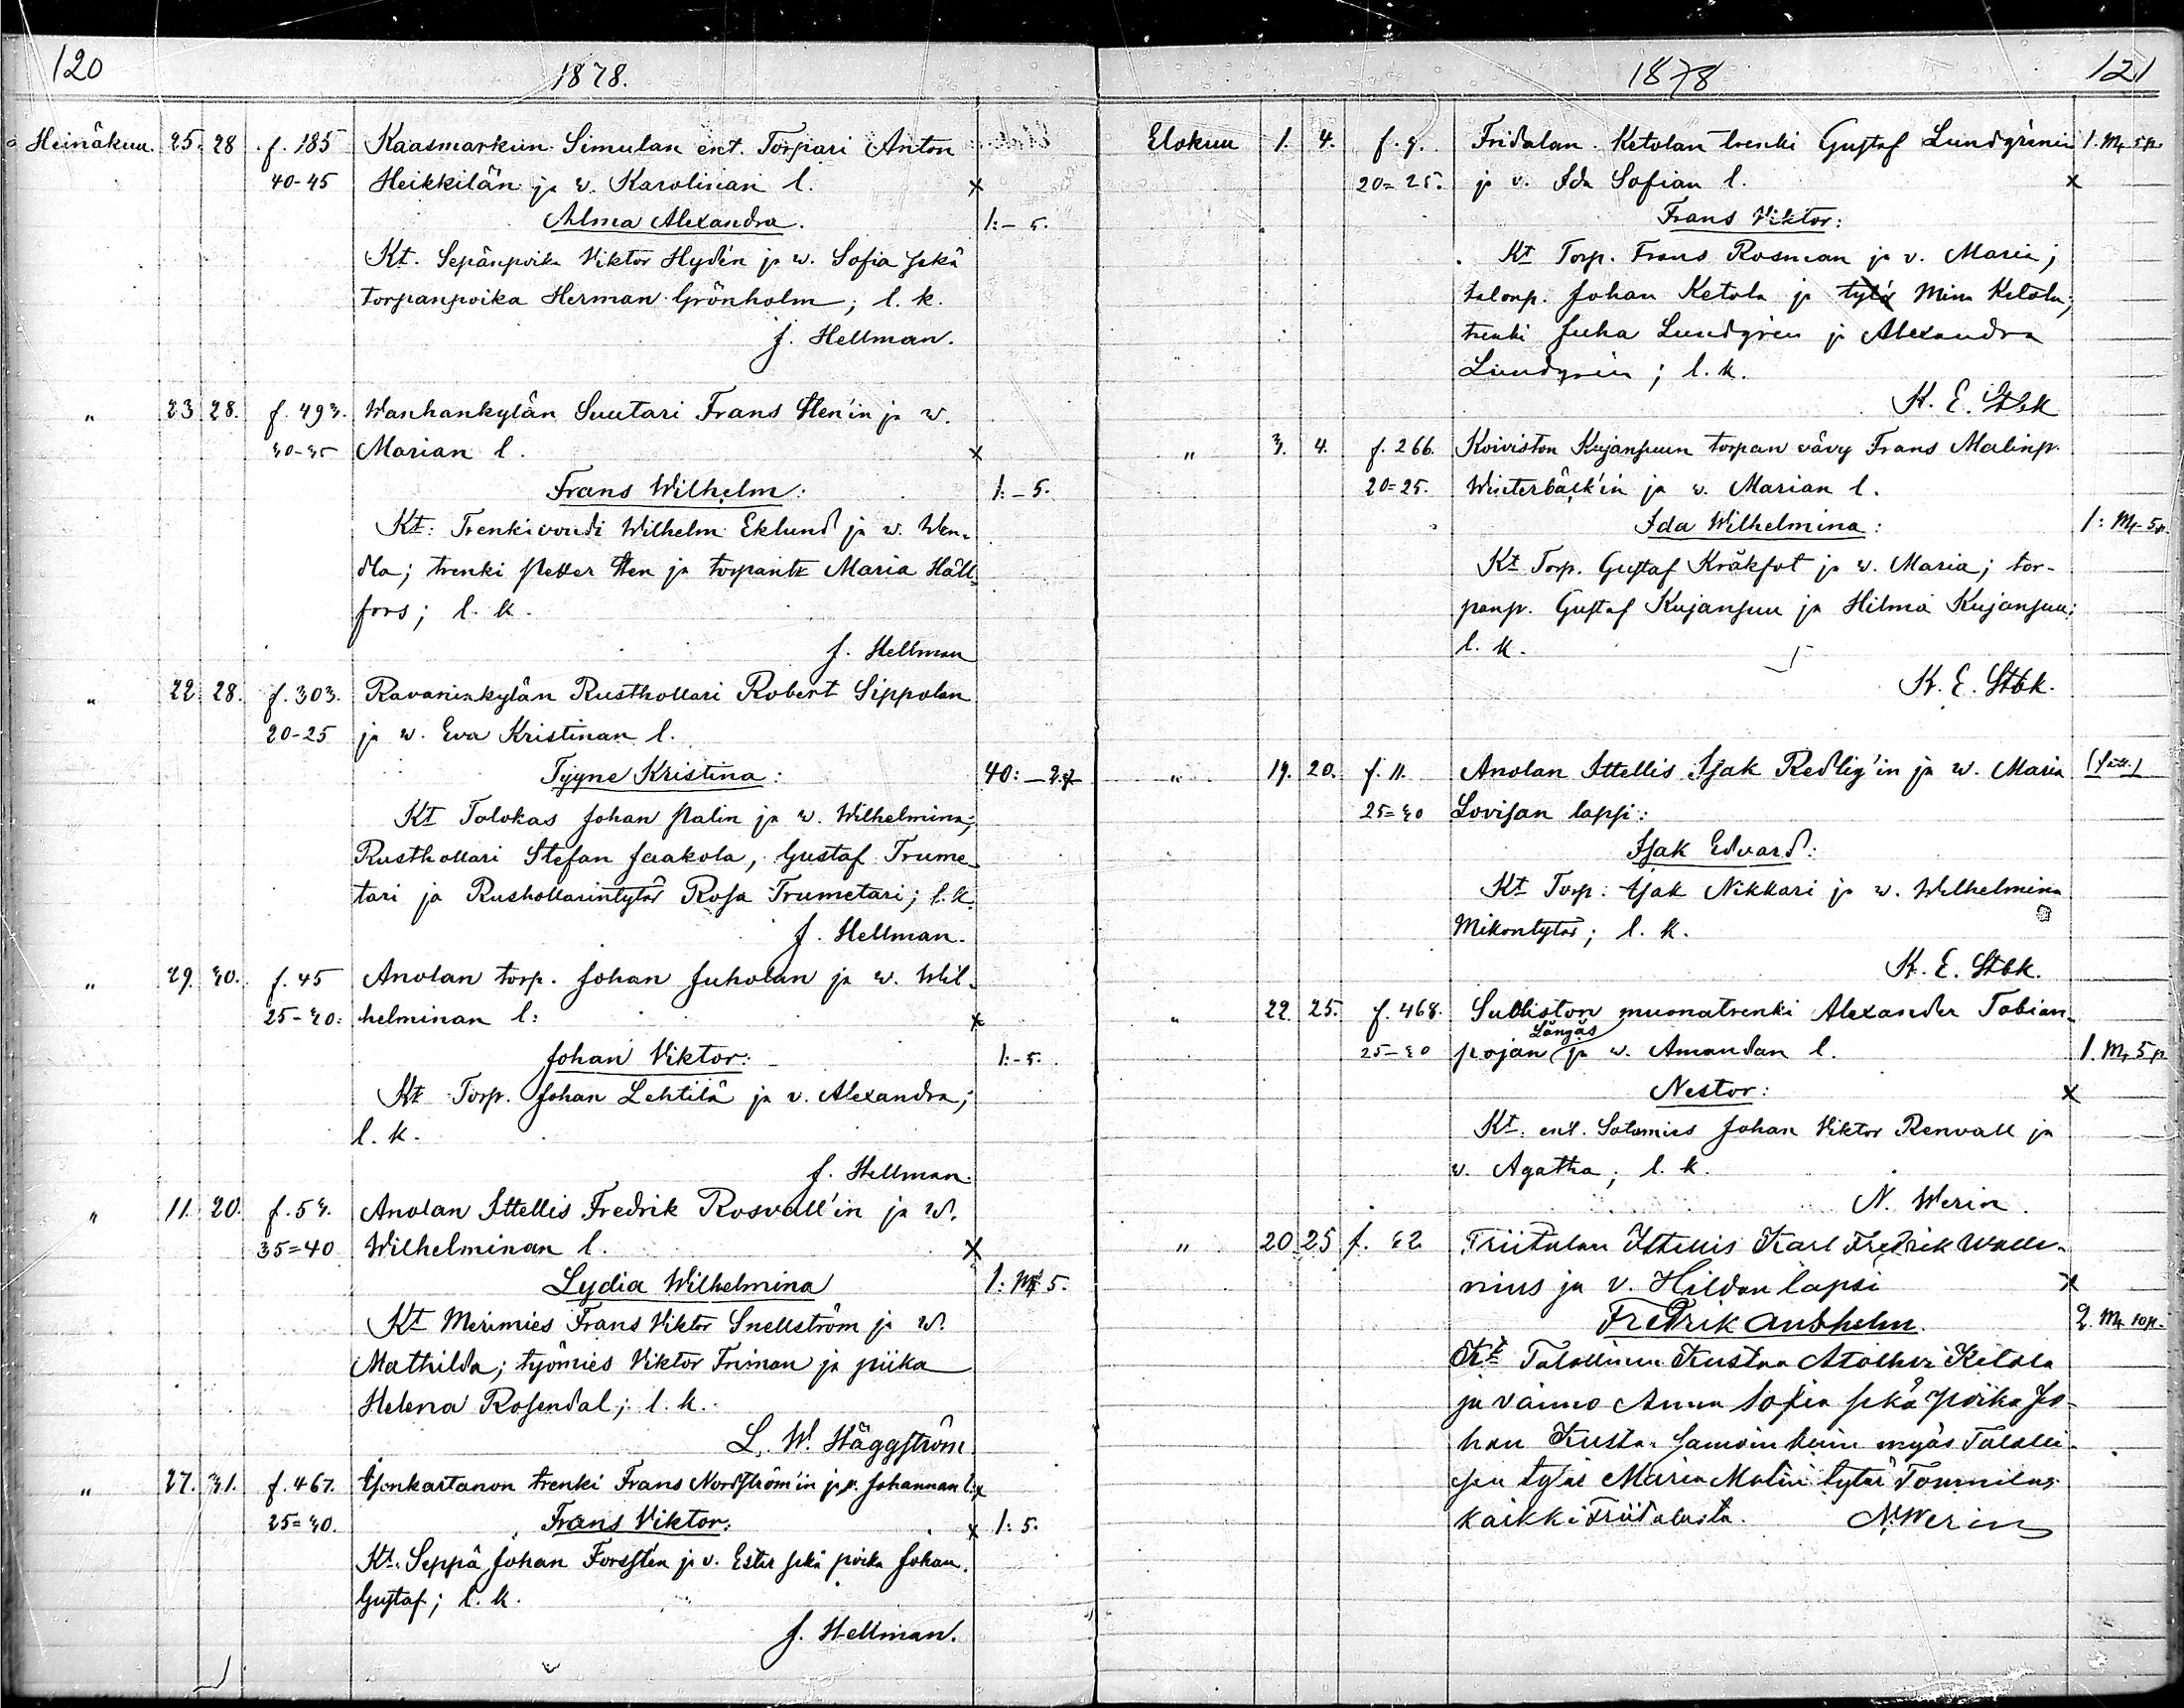 120
1878.
Heinäkuu. 25. 28 f. 185 Kaasmarkun Simulan ent. Torpari Anton
40-45 Heikkilän ja w. Karolinan l. x
Alma Alexandra. 1:- 5.
Kt. Sepänpoika Viktor Hydén ja w. Sofia sekä
torpanpoika Herman Grönholm; l. k.
J. Hellman.
" 23 28. f. 493. Wanhankylän Suutari Frans Sten'in ja w.
30-35 Marian l. x
Frans Wilhelm: 1:- 5.
Kt: Trenkivouti Wilhelm Eklund ja w. Wen-
dla; trenki Petter Sten ja torpantr Maria Häll-
fors; l. k.
J. Hellman
" 22. 28. f. 303. Ravaninkylän Rusthollari Robert Sippolan
20-25 ja w. Eva Kristinan l.
Tyyne Kristina: 40:-
Kt Talokas Johan Malin ja w. Wilhelmina;
Rusthollari Stefan Jaakola, Gustaf Trume-
tari ja Rushollarintytär Rosa Trumetari; l. k.
J. Hellman.
" 29. 30. f. 45 Anolan torp. Johan Juholan ja w. Wil-
25-30: helminan l: x
Johan Viktor: 1:- 5.
Kt Torp. Johan Lehtilä ja v. Alexandra;
l. k.
J. Hellman.
" 11. 20. f. 53. Anolan Ittellis Fredrik Rosvall'in ja W.
35=40 Wilhelminan l. x
Lydia Wilhelmina 1: Mk 5.
Kt Merimies Frans Viktor Snellström ja W.
Mathilda; työmies Viktor Friman ja piika
Helena Rosendal; l. k.
L. W. Häggström
" 27. 31. f. 467. Isonkartanon trenki Frans Nordström'in ja v. Johannan l. x
25=30. Frans Viktor: x 1: 5.
Kt. Seppä Johan Forstén ja v. Ester sekä poika Johan
Gustaf; l. k.
J. Hellman.
1878
121
Elokuu 1. 4. f. 9. Fridalan Ketolan trenki Gustaf Lundgrénin 1. Mk 5 p.
20=25. ja v. Ida Sofian l. x
Frans Viktor:
Kt Torp. Frans Rosman ja v. Maria;
talonp. Johan Ketola ja tytär Mina Ketola;
trenki Juha Lundgrén ja Alexandra
Lundgrén; l. k.
K. E. Stbk
" 3. 4. f. 266. Koiviston Kujansuun torpan vävy Frans Malinp.
20=25. Winterbäck'in ja w. Marian l.
Ida Wilhelmina: 1: Mk 5p.
Kt Torp. Gustaf Kråkfot ja w. Maria; tor-
panp. Gustaf Kujansuu ja Hilma Kujansuu;
l. k.
K. E. Stbk.
" 19. 20. f. 11. Anolan Ittellis Isak Redlig'in ja w. Maria
25=30 Lovisan lapsi:
Isak Edvard:
Kt Torp. Isak Nikkari ja w. Wilhelmina
Mikontytär; l. k.
K. E. Stbk.
" 22. 25. f. 468. Sulliston muonatrenki Alexander Tobian-
Långås
25-30 pojan ja w. Amandan l. 1. Mk 5 p
Nestor: x
Kt: ent. Sotamies Johan Viktor Renvall ja
v. Agatha; l. k.
N. Werin.
" 20 25 f. 32 Friitalan Ittellis Karl Fredrik Walle-
nius ja v. Hildan lapsi x
Fredrik Anshelm. 2. Mk 10p.
Kt Talollinen Kustaa Ketola
ja vaimo Anna Sofia sekä poika Jo-
han Kusta, samoin kuin myös Talolli-
sen tytär Maria Malin tytär Tommila;
kaikki Friitalasta. N. Werin